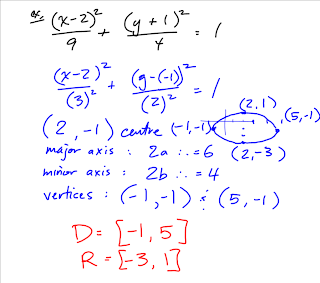 ex. (x-2)²/9 + (y+1)²/4 = 1
(x-2)²/(3)² + (y-(-1))²/(2)² = 1
(2, -1) centre
(2,1)
(-1,-1)
(5,-1)
(2,-3)
major axis : 2a ∴ = 6
minor axis : 2b ∴ = 4
vertices : (-1,-1) ; (5,-1)
D = [-1, 5]
R = [-3, 1]